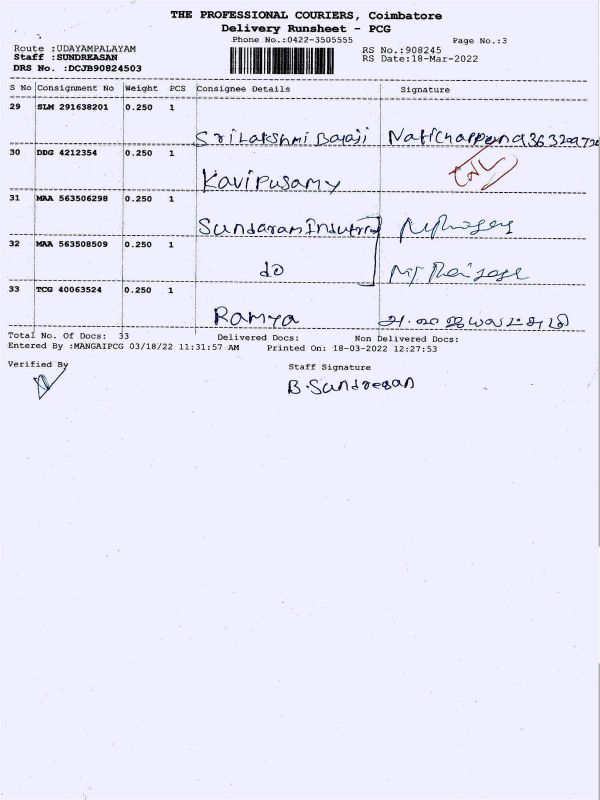 THE PROFESSIONAL COURIERS, Coimbatore
Delivery Runsheet - PCG
Phone No.:0422-3505555
Page No.:3
Route :UDAYAMPALAYAM
Staff :SUNDREASAN
DRS No. :DCJB90824503
RS No.:908245
RS Date:18-Mar-2022
S No Consignment No Weight PCS Consignee Details Signature
29 SLM 291638201 0.250 1
Sri Lakshmi Balaji
30 DDG 4212354 0.250 1
Kavipusamy
31 MAA 563506298 0.250 1
Sundaram
32 MAA 563508509 0.250 1
do
33 TCG 40063524 0.250 1
Ramya
Total No. Of Docs: 33 Delivered Docs: Non Delivered Docs:
Entered By :MANGAIPCG 03/18/22 11:31:57 AM Printed On: 18-03-2022 12:27:53
Verified By
Staff Signature
B.Sundreasan